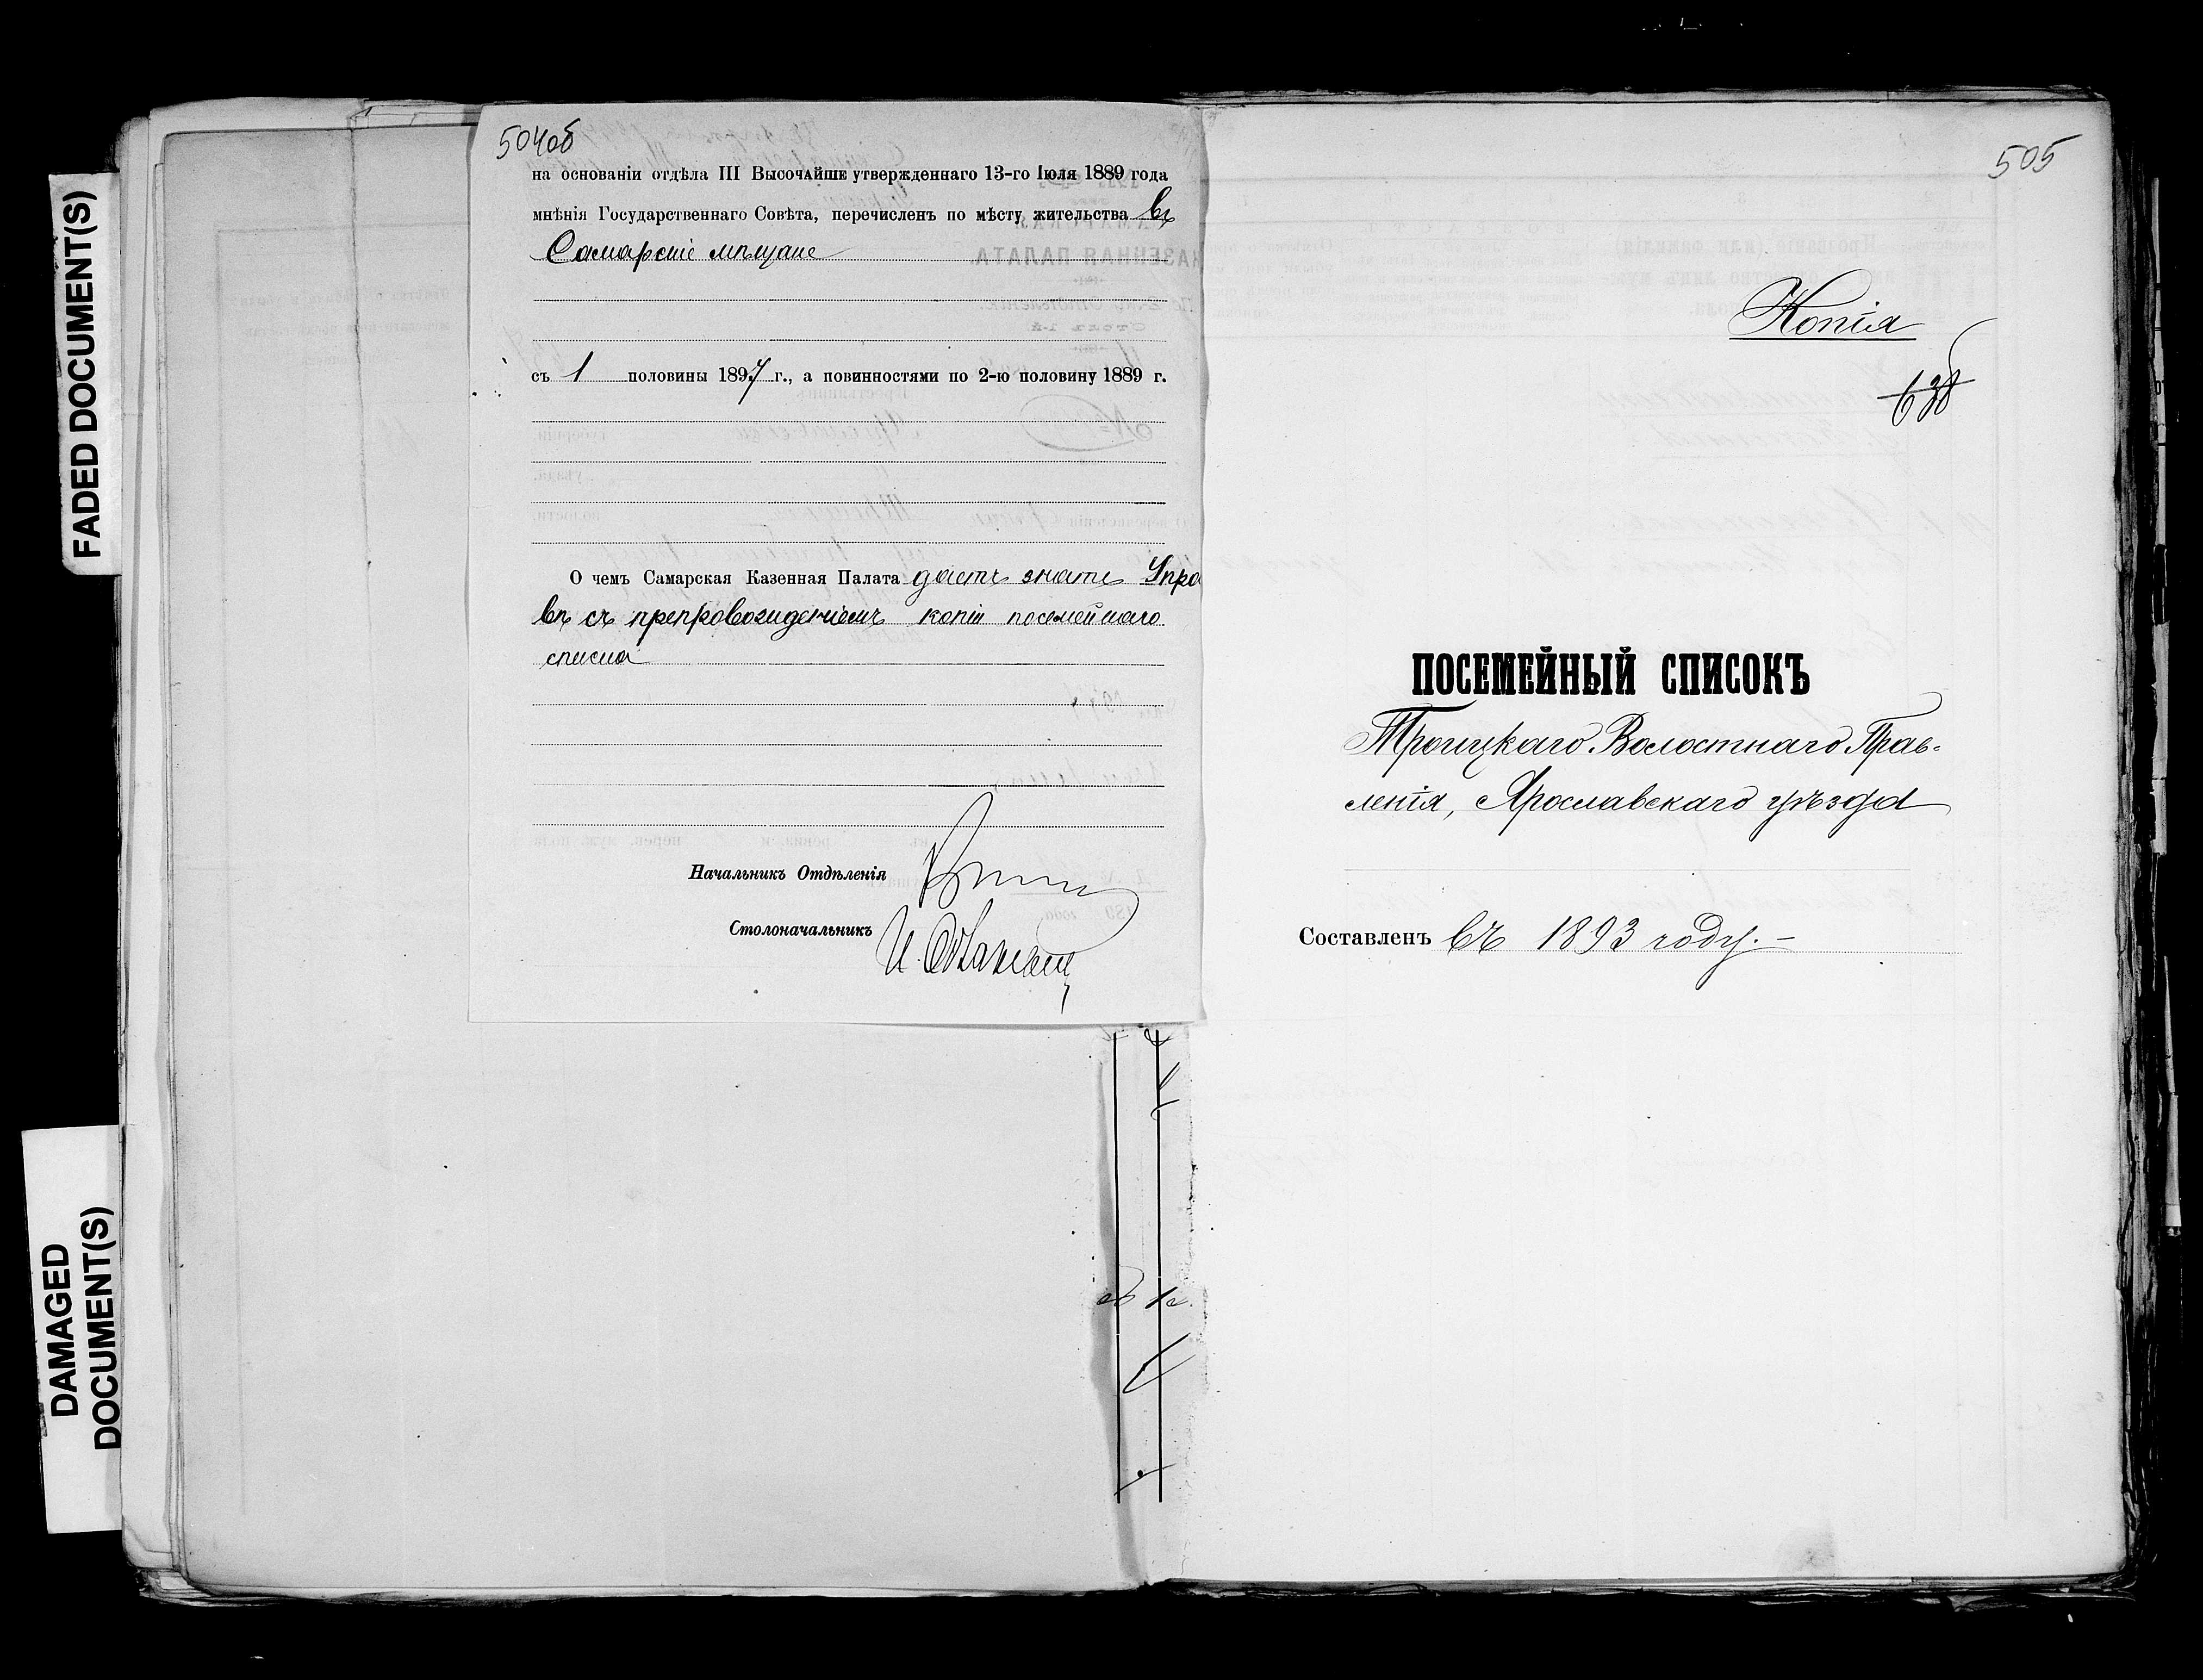 FADED DOCUMENT(S)
DAMAGED
DOCUMENT(S)
504об
на основаніи отдѣла III Высочайше утвержденнаго 13-го Іюля 1889 года
мнѣнія Государственнаго Совѣта, перечисленъ по мѣсту жительства въ
Самарскіе мѣщане
съ 1 половины 1897 г., а повинностями по 2-ю половину 1889 г.
О чемъ Самарская Казенная Палата даетъ знать Упра
вѣ съ препровожденіемъ копіи посемейнаго
списка
Начальникъ Отдѣленія
Столоначальникъ
505
Копія
638
ПОСЕМЕЙНЫЙ СПИСОКЪ
Троицкаго Волостнаго Прав-
ленія, Ярославскаго уѣзда
Составленъ въ 1893 году.-